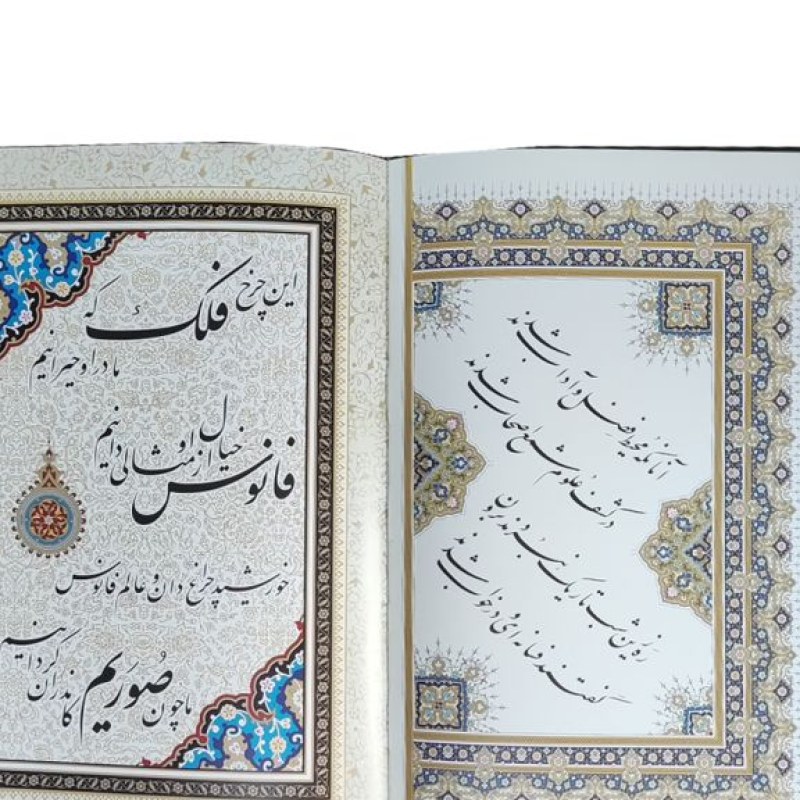 آنانکه محیط فضل و آداب شدند
در کشف علوم شمع اصحاب شدند
ره زین شب تاریک نبردند برون
گفتند فسانه ای و در خواب شدند
این چرخ فلک که
ما در او حیرانیم
فانوس خیال از او مثالی دانیم
خورشید چراغ دان و عالم فانوس
ما چون صُوَریم کاندران گردانیم